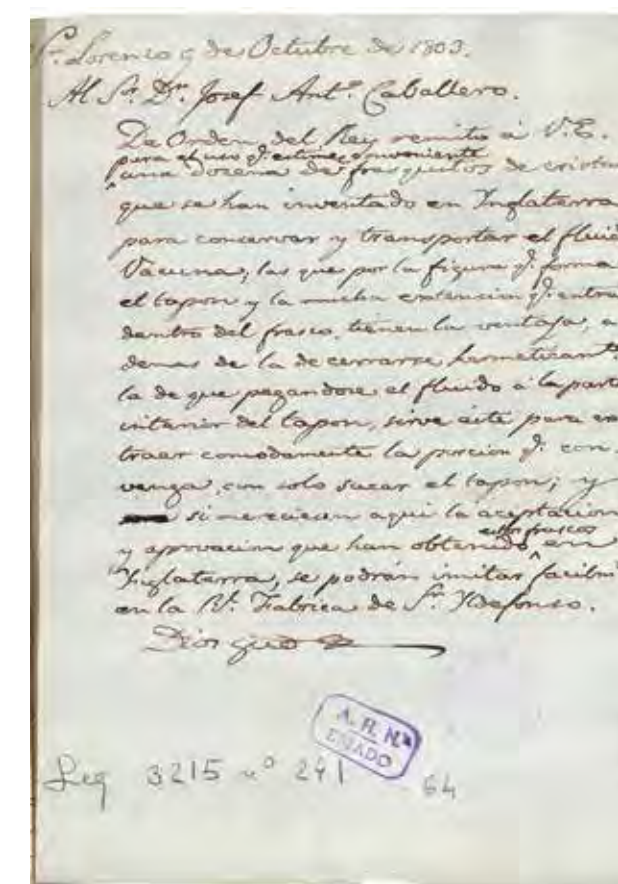 Sn. Lorenzo 9 de Octubre de 1803.
Al Sor. Dn. Josef Anto. Caballero.
De Orden del Rey remito á V.E.
para el uso qe. estime conveniente
una docena de frasquitos de cristal
que se han inventado en Inglaterra
para conservar y transportar el fluid
Vacuno; los que por la figura qe. forma
el tapon y la mucha extension qe. entra
dentro del frasco, tienen la ventaja, a
demas de la de cerrarse hermeticamte.
la de que pegandose el fluido á la part
interior del tapon, sirve éste para ex
traer comodamente la porcion qe. con
venga, con solo sacar el tapon; y
si mereciesen aqui la aceptacion
estos frascos
y aprovacion que han obtenido en
Inglaterra, se podrán imitar facilm
en la Rl. Fabrica de Sn. Ildefonso.
Dios gue
A. H. N.
ESTADO
Leg 3215 nº 241 64